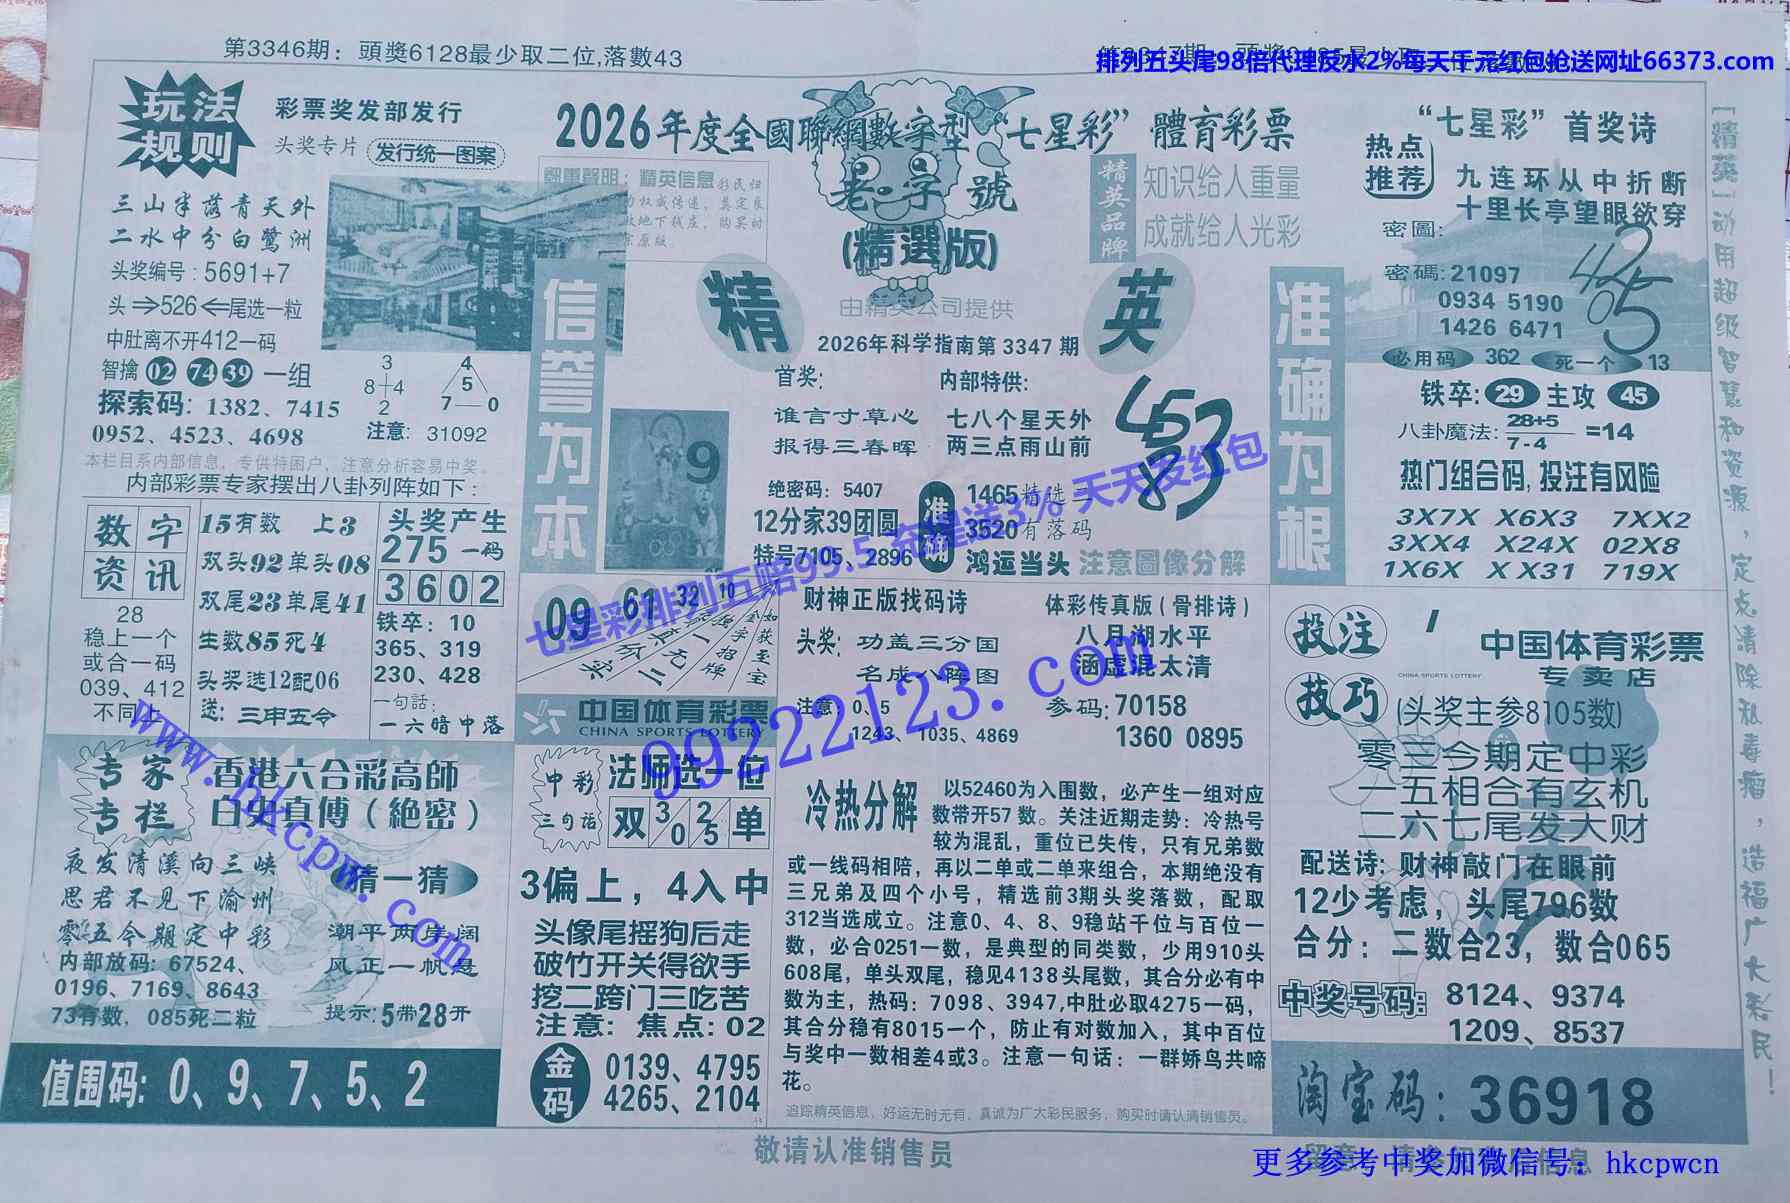 第3346期：頭獎6128最少取二位,落數43
排列五头尾98倍代理反水2%每天千元红包抢送网址66373.com
玩法规则
彩票奖发部发行
头奖专片 发行统一图案
三山半落青天外
二水中分白鹭洲
头奖编号：5691+7
头⇒526⇐尾选一粒
中肚离不开412一码
智擒 02 74 39 一组
探索码：1382、7415
0952、4523、4698
3
8 4
2
4
5
7 0
注意：31092
本栏目系内部信息，专供特困户，注意分析容易中奖。
内部彩票专家摆出八卦列阵如下：
2026年度全國聯網數字型“七星彩”體育彩票
鄭重聲明：精英信息
老字號
(精選版)
精英品牌
知识给人重量
成就给人光彩
精英
由精英公司提供
2026年科学指南第3347期
信誉为本
准确为根
9
首奖：
谁言寸草心
报得三春晖
内部特供：
七八个星天外
两三点雨山前
绝密码：5407
12分家39团圆
特号7105、2896
准确
1465精选二
3520有落码
鸿运当头 注意圖像分解
“七星彩”首奖诗
热点推荐
九连环从中折断
十里长亭望眼欲穿
密圖：
密碼：21097
0934 5190
1426 6471
必用码 362 死一个 13
铁卒：29 主攻 45
八卦魔法：28+5
7-4 =14
热门组合码,投注有风险
3X7X X6X3 7XX2
3XX4 X24X 02X8
1X6X XX31 719X
[精英]动用超级智慧和资源，定点清除私毒瘤，造福广大彩民！
数字资讯
15有数 上3
双头92单头08
双尾23单尾41
生数85死4
头奖选12配06
送：三申五令
头奖产生
275一码
3602
铁卒：10
365、319
230、428
一句話：
一六暗中落
28
稳上一个
或合一码
039、412
不同上
09 61 32 10
如获至宝
中国体育彩票
CHINA SPORTS LOTTERY
财神正版找码诗
头奖：功盖三分国
名成八阵图
注意：0、5
1243、1035、4869
体彩传真版(骨排诗)
八月湖水平
涵虚混太清
参码：70158
1360 0895
投注技巧
中国体育彩票
CHINA SPORTS LOTTERY
专卖店
(头奖主参8105数)
零三今期定中彩
一五相合有玄机
二六七尾发大财
配送诗：财神敲门在眼前
12少考虑，头尾796数
合分：二数合23，数合065
中奖号码：8124、9374
1209、8537
淘宝码：36918
专家专栏
香港六合彩高師
白史真傅(絶密)
夜发清溪向三峡
思君不见下渝州
零五今期定中彩
内部放码：67524、
0196、7169、8643
73有数，085死二粒
猜一猜
潮平两岸阔
风正一帆悬
提示：5带28开
值围码：0、9、7、5、2
中彩三句话
法师选一位
双 3 0 2 5 单
3偏上，4入中
头像尾摇狗后走
破竹开关得欲手
挖二跨门三吃苦
注意：焦点：02
金码
0139、4795
4265、2104
冷热分解
以52460为入围数，必产生一组对应
数带开57数。关注近期走势：冷热号
较为混乱，重位已失传，只有兄弟数
或一线码相陪，再以二单或二单来组合，本期绝没有
三兄弟及四个小号，精选前3期头奖落数，配取
312当选成立。注意0、4、8、9稳站千位与百位一
数，必合0251一数，是典型的同类数，少用910头
608尾，单头双尾，稳见4138头尾数，其合分必有中
数为主，热码：7098、3947,中肚必取4275一码，
其合分稳有8015一个，防止有对数加入，其中百位
与奖中一数相差4或3。注意一句话：一群娇鸟共啼
花。
追踪精英信息，好运无时无有，真诚为广大彩民服务，购买时请认满销售员。
敬请认准销售员
七星彩排列五赔99.5 充值送3% 天天发红包
99222123.com
www.hkcpw.com
更多参考中奖加微信号：hkcpwcn